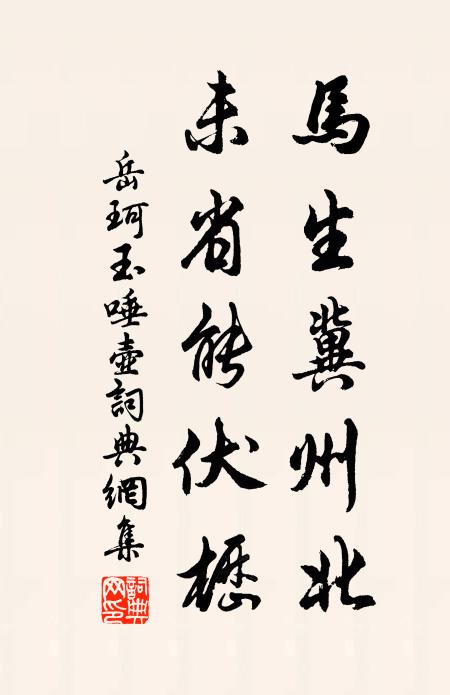 馬生冀州北
未省能伏櫪
岳珂玉唾壺詞典網集
詞典網印